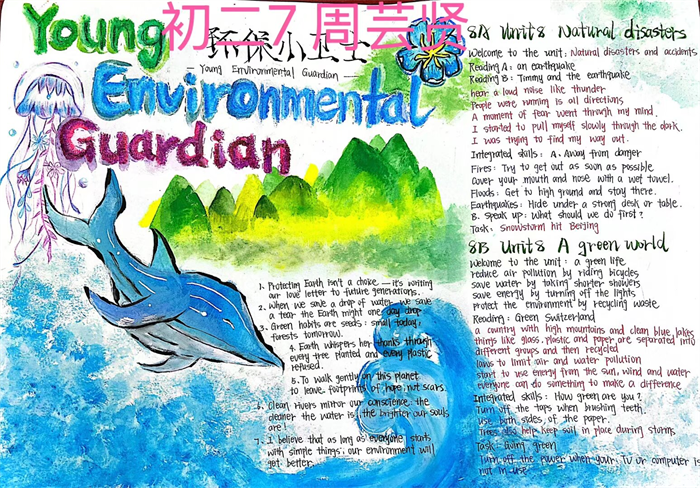 初二7 周芸贤
Young
环保小卫士
- Young Environmental Guardian -
Environmental
Guardian
1. Protecting Earth isn't a choke — it's writing
our love letter to future generations.
2. When we save a drop of water, we save
a tear the Earth might one day drop
3. Green habits are seeds: small today,
forests tomorrow.
4. Earth whispers her thanks through
every tree planted and every plastic
refused.
5. To walk gently on this planet
to leave footprints of hope, not scars.
6. Clean rivers mirror our conscience: the
cleaner the water is, the brighter our souls
are!
7. I believe that as long as everyone starts
with simple things, our environment will
get better.
8A Unit8 Natural disasters
Welcome to the unit: Natural disasters and accidents
Reading A: an earthquake
Reading B: Timmy and the earthquake
hear a loud noise like thunder
People were running is all directions
A moment of fear went through my mind.
I started to pull myself slowly through the dark.
I was trying to find my way out.
Integrated skills: A. Away from danger
Fires: Try to get out as soon as possible
Cover your mouth and nose with a wet towel.
Floods: Get to high ground and stay there.
Earthquakes: Hide under a strong desk or table.
B. Speak up: What should we do first?
Task: Snowstorm hit Beijing
8B Unit8 A green world
Welcome to the unit: a green life
reduce air pollution by riding bicycles
save water by taking shorter showers
save energy by turning off the lights
protect the environment by recycling waste.
Reading: Green Switzerland
a country with high mountains and clean blue lakes
things like glass, plastic and paper are separated into
different groups and then recycled
laws to limit air and water pollution
start to use energy from the sun, wind and water
everyone can do something to make a difference
Integrated skills: How green are you?
Turn off the taps when brushing teeth.
Use both sides of the paper.
Trees also help keep soil in place during storms
Task: Going green
Turn off the power when your TV or computer is
not in use